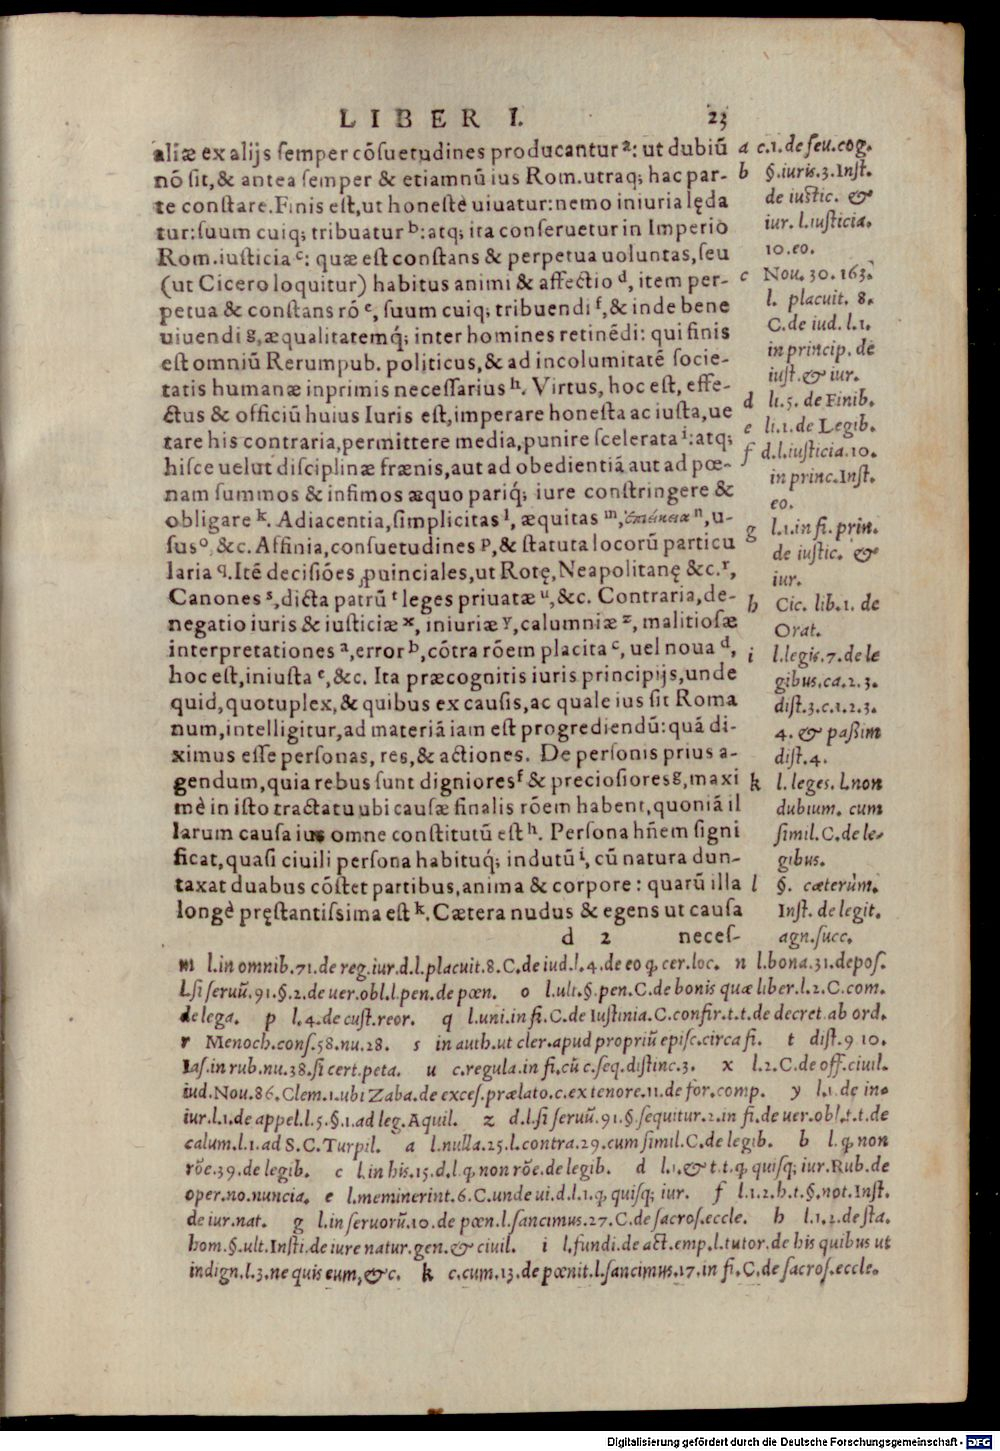 LIBER I. 23
aliæ ex alijs semper cõsuetudines producantur ª: ut dubiũ
nõ sit, & antea semper & etiamnũ ius Rom. utraq; hac par-
te constare. Finis est, ut honestè uiuatur: nemo iniuria lęda
tur: suum cuiq; tribuatur ᵇ: atq; ita conseruetur in Imperio
Rom. iusticia ᶜ: quæ est constans & perpetua uoluntas, seu
(ut Cicero loquitur) habitus animi & affectio ᵈ, item per-
petua & constans rõ ᵉ, suum cuiq; tribuendi ᶠ, & inde bene
uiuendi g, æqualitatemq́; inter homines retinẽdi: qui finis
est omniũ Rerumpub. politicus, & ad incolumitatẽ socie-
tatis humanæ inprimis necessarius ʰ. Virtus, hoc est, effe-
ctus & officiũ huius Iuris est, imperare honesta ac iusta, ue
tare his contraria, permittere media, punire scelerata ⁱ: atq;
hisce uelut disciplinæ frænis, aut ad obedientiã aut ad pœ-
nam summos & infimos æquo pariq́; iure constringere &
obligare ᵏ. Adiacentia, simplicitas ˡ, æquitas ᵐ, ἐπιείκεια ⁿ, u-
sus ᵒ, &c. Affinia, consuetudines p, & statuta locorũ particu
laria q. Itẽ decisiões ꝓuinciales, ut Rotę, Neapolitanę &c. ʳ,
Canones ˢ, dicta patrũ ᵗ leges priuatæ ᵘ, &c. Contraria, de-
negatio iuris & iusticiæ ˣ, iniuriæ ʸ, calumniæ ᶻ, malitiosæ
interpretationes ª, error ᵇ, cõtra rõem placita ᶜ, uel noua ᵈ,
hoc est, iniusta ᵉ, &c. Ita præcognitis iuris principijs, unde
quid, quotuplex, & quibus ex causis, ac quale ius sit Roma
num, intelligitur, ad materiã iam est progrediendũ: quã di-
ximus esse personas, res, & actiones. De personis prius a-
gendum, quia rebus sunt digniores ᶠ & preciosiores g, maxi
mè in isto tractatu ubi causæ finalis rõem habent, quoniã il
larum causa ius omne constitutũ est ʰ. Persona hñem signi
ficat, quasi ciuili persona habituq́; indutũ ⁱ, cũ natura dun-
taxat duabus cõstet partibus, anima & corpore: quarũ illa
longè pręstantissima est ᵏ. Cætera nudus & egens ut causa
d 2 neces-
a c. 1. de feu. cog.
b §. iuris. 3. Inst.
de iustic. &
iur. l. iusticia.
10. eo.
c Nou. 30. 163.
l. placuit. 8.
C. de iud. l. 1.
in princip. de
iust. & iur.
d li. 5. de Finib.
e li. 1. de Legib.
f d. l. iusticia. 10.
in princ. Inst.
eo.
g l. 1. in fi. prin.
de iustic. &
iur.
h Cic. lib. 1. de
Orat.
i l. legis. 7. de le
gibus. ca. 2. 3.
dist. 3. c. 1. 2. 3.
4. & paßim
dist. 4.
k l. leges. l. non
dubium. cum
simil. C. de le-
gibus.
l §. cæterùm.
Inst. de legit.
agn. succ.
m l. in omnib. 71. de reg. iur. d. l. placuit. 8. C. de iud. l. 4. de eo q̃ cer. loc. n l. bona. 31. depos.
l. si seruũ. 91. §. 2. de uer. obl. l. pen. de pœn. o l. ult. §. pen. C. de bonis quæ liber. l. 2. C. com.
de lega. p l. 4. de cust. reor. q l. uni. in fi. C. de Iustinia. C. confir. t. t. de decret. ab ord.
r Menoch. cons. 58. nu. 28. s in auth. ut cler. apud propriũ episc. circa fi. t dist. 9 10.
Ias. in rub. nu. 38. si cert. peta. u c. regula. in fi. cũ c. seq. distinc. 3. x l. 2. C. de off. ciuil.
iud. Nou. 86. Clem. 1. ubi Zaba. de exces. prælato. c. ex tenore. 11. de for. comp. y l. 1. de in-
iur. l. 1. de appel. l. 5. §. 1. ad leg. Aquil. z d. l. si seruũ. 91. §. sequitur. 2. in fi. de uer. obl. t. t. de
calum. l. 1. ad S. C. Turpil. a l. nulla. 25. l. contra. 29. cum simil. C. de legib. b l. q̃ non
rõe. 39. de legib. c l. in his. 15. d. l. q̃ non rõe. de legib. d l. 1. & t. t. q̃ quisq; iur. Rub. de
oper. no. nuncia. e l. meminerint. 6. C. unde ui. d. l. 1. q̃ quisq; iur. f l. 1. 2. h. t. §. not. Inst.
de iur. nat. g l. in seruorũ. 10. de pœn. l. sancimus. 27. C. de sacros. eccle. h l. 1. 2. de sta.
hom. §. ult. Insti. de iure natur. gen. & ciuil. i l. fundi. de act. emp. l. tutor. de his quibus ut
indign. l. 3. ne quis eum, &c. k c. cum. 13. de pœnit. l. sancimus. 17. in fi. C. de sacros. eccle.
Digitalisierung gefördert durch die Deutsche Forschungsgemeinschaft - DFG